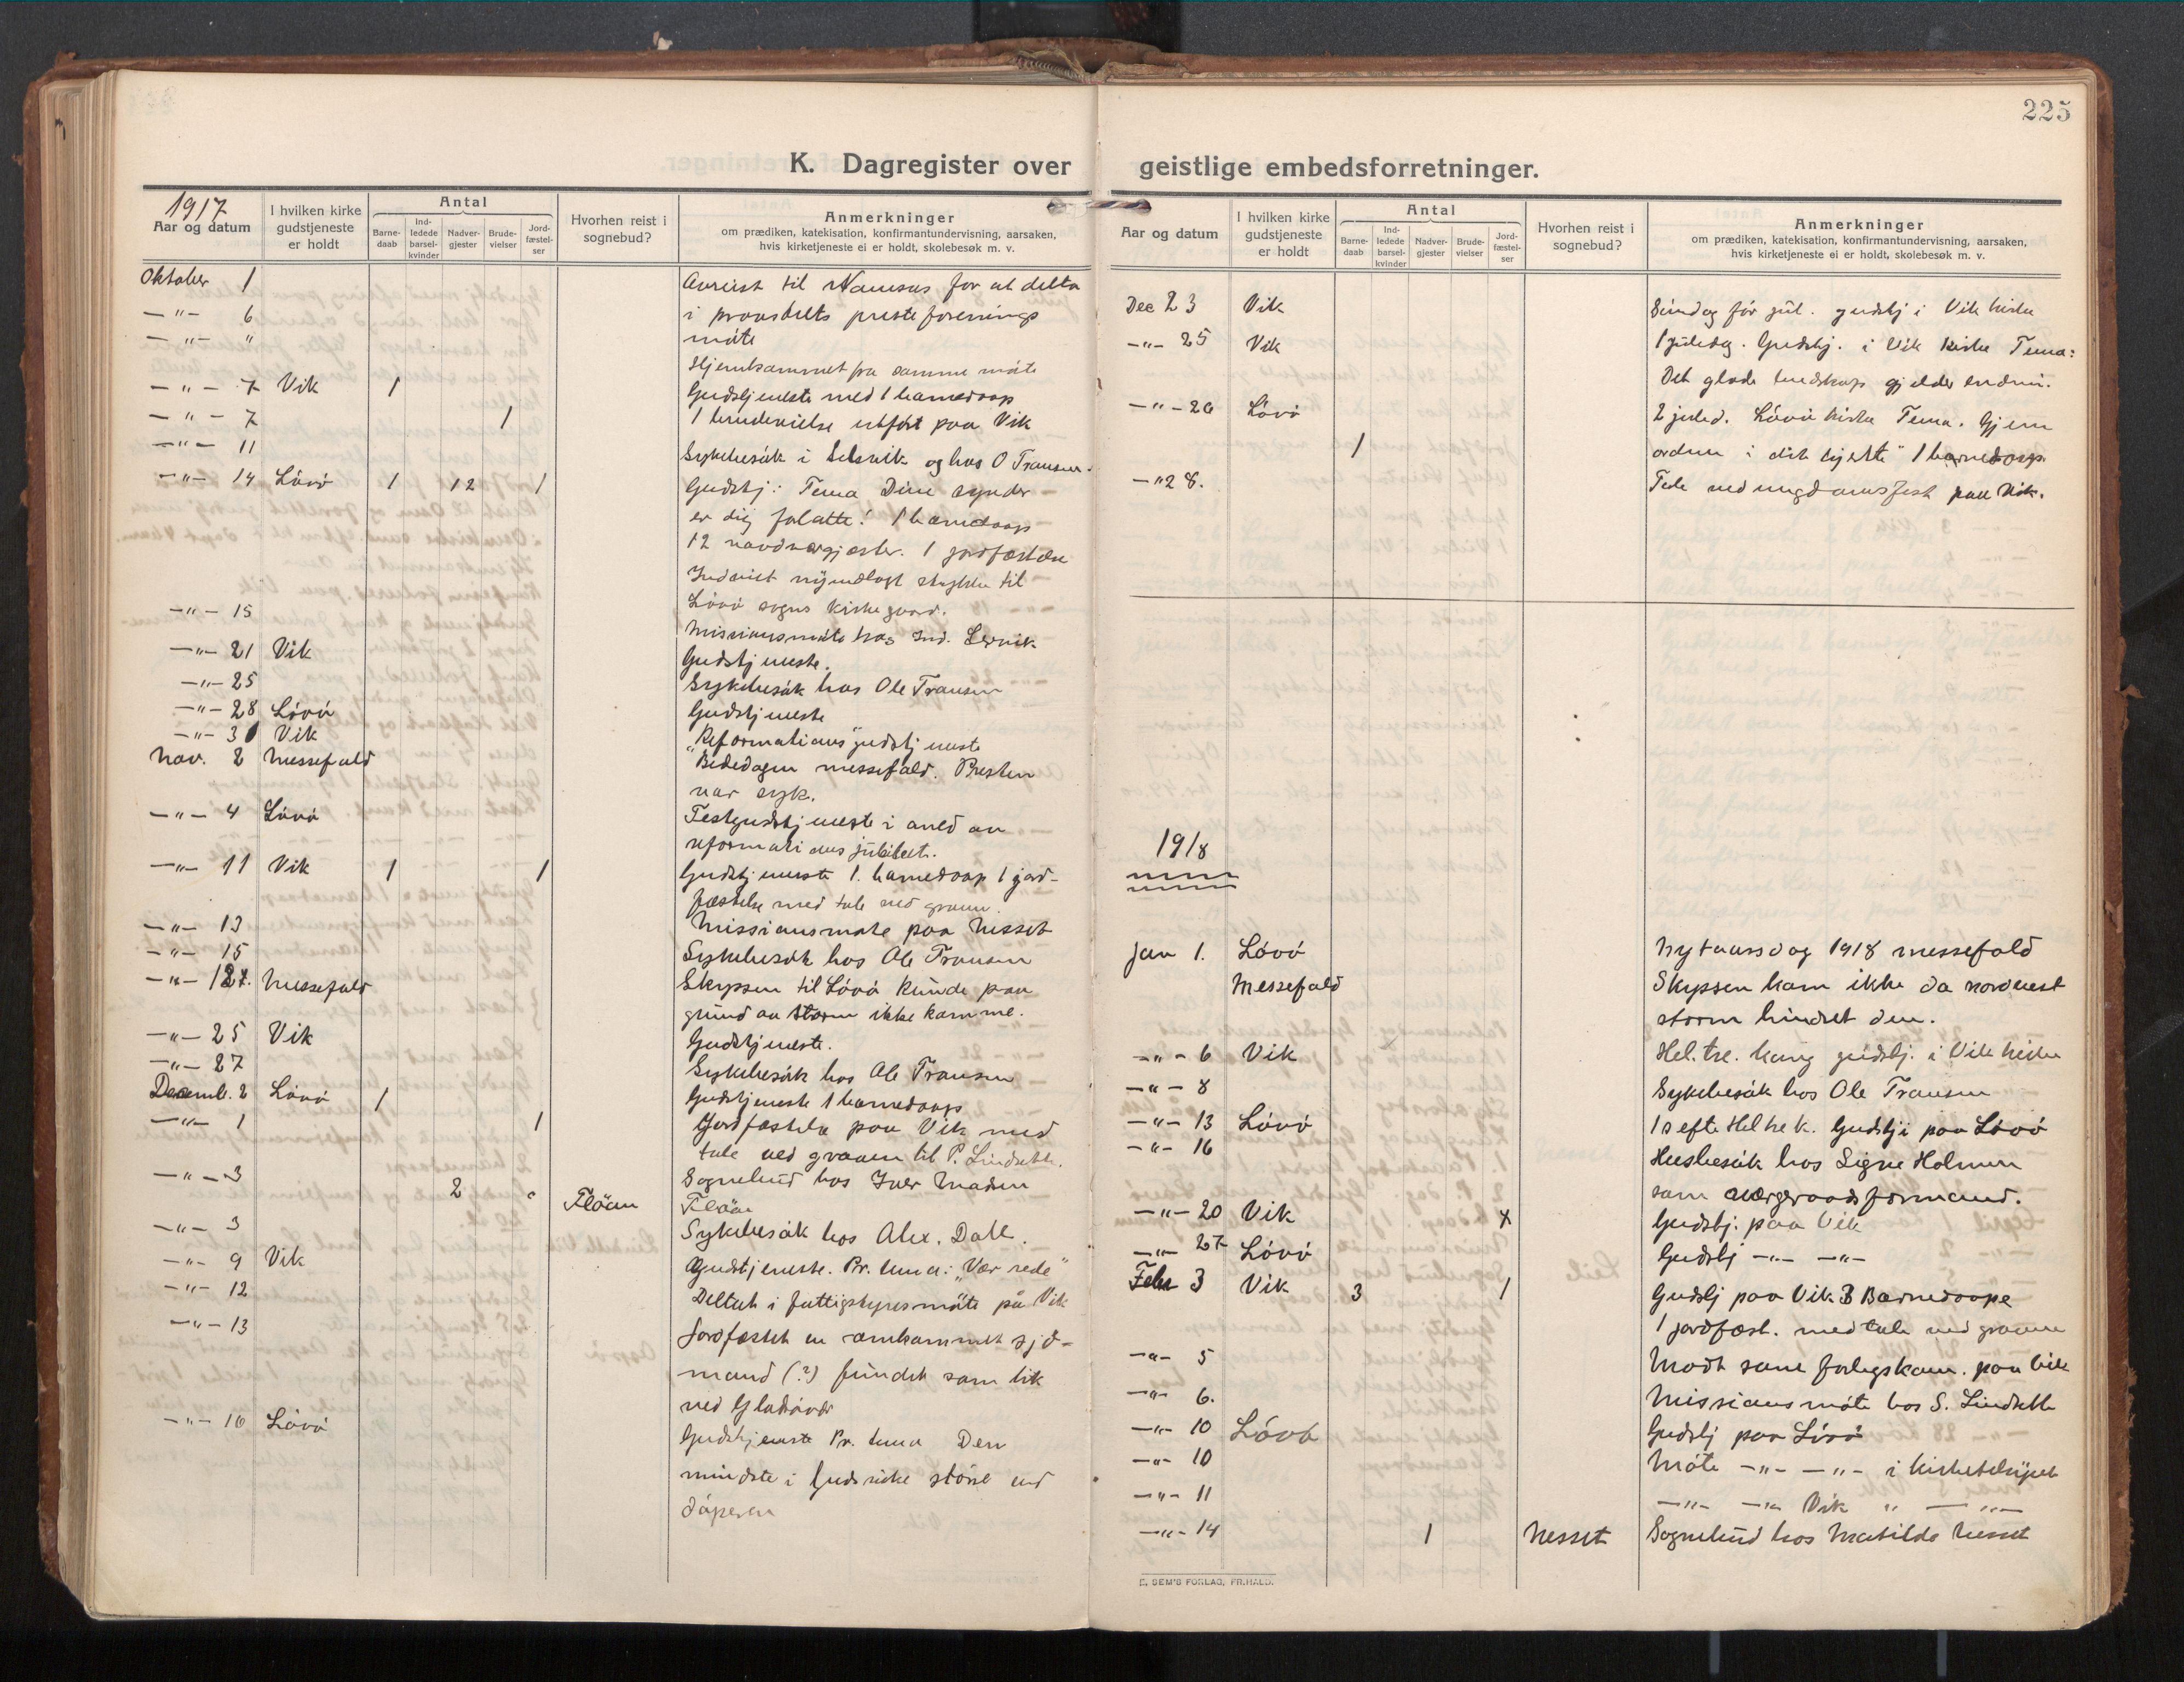 225
K. Dagregister over geistlige embedsforretninger.
1917
Aar og datum
I hvilken kirke gudstjeneste er holdt
Antal
Barne-daab
Ind-ledede barsel-kvinder
Nadver-gjester
Brude-vielser
Jord-fæstel-ser
Hvorhen reist i sognebud?
Anmerkninger
om prædiken, katekisation, konfirmantundervisning, aarsaken,
hvis kirketjeneste ei er holdt, skolebesøk m. v.
Oktober 1 Avreist til Namsos for at delta
—"— 6 i provstiets presteforenings
—"— " møte
Hjemkommet fra samme møte
—"— 7 Vik 1 Gudstjeneste med 1 barnedaap
—"— 7 1 1 brudevielse utført paa Vik
—"— 11 Sykebesøk i og hos O Transen.
—"— 14 Lövö 1 12 1 Gudstj: Tema Dine synder
er dig forlatte! 1 barnedaap
12 navdvergjester. 1 jordfæstelse
Indviet nyindlagt stykke til
Lövö sogns kirkegaard.
—"— 15 Missionsmöte hos
—"— 21 Vik Gudstjeneste.
—"— 25 Sykebesök hos Ole Transen
—"— 28 Lövö Gudstjeneste
—"— 31 Vik "Reformations"gudstjeneste
Nov. 2 Messefald Bededagen messefald. Presten
var syk.
—"— 4 Lövö Festgudstjeneste i anld av
reformationsjubileet.
—"— 11 Vik 1 1 Gudstjeneste 1. barnedaap 1 jord-
fæstelse med tale ved graven.
—"— 13 Missionsmøte paa Nesset
—"— 15 Sykebesök hos Ole Transen
—"— 18. Messefald Skyssen til Lövö kunde paa
grund av storm ikke komme.
—"— 25 Vik Gudstjeneste.
—"— 27 Sykebesök hos Ole Transen
Decemb. 2 Lövö 1 Gudstjeneste 1 barnedaap
—"— 1 1 Jordfæstelse paa Vik med
tale ved graven til P. Lindseth.
—"— 3 2 Flöan Sognebud hos Iver Madsen
Flöan
—"— 3 Sykebesök hos Alex. Dahl.
—"— 9 Vik Gudstjeneste. Pr. tema: "Vær rede"
—"— 12 Deltatt i fattigstyresmöte på Vik
—"— 13 Jordfæstet en omkommet sjö-
mand (?) fundet som lik
ved
—"— 16 Lövö Gudstjeneste Pr. tema Den
mindste i Guds rike större end
döperen
Aar og datum
I hvilken kirke gudstjeneste er holdt
Antal
Barne-daab
Ind-ledede barsel-kvinder
Nadver-gjester
Brude-vielser
Jord-fæstel-ser
Hvorhen reist i sognebud?
Anmerkninger
om prædiken, katekisation, konfirmantundervisning, aarsaken,
hvis kirketjeneste ei er holdt, skolebesøk m. v.
Dec 23 Vik Söndag för jul. gudstj i Vik kirke
—"— 25 Vik 1 juledag. Gudstj. i Vik kirke Tema:
Det glade budskap gjelder endnu.
—"— 26 Lövö 2 juled. Lövö kirke Tema. Gjem
1 ordene i dit hjerte" 1 barnedaap.
—"28. Tale ved ungdomsfest paa Vik.
1918
Jan 1. Lövö Nytaarsdag 1918 messefald
Messefald Skyssen kom ikke da nordvest
storm hindret den.
—"— 6 Vik Hel. tre. kong gudstj. i Vik kirke
—"— 8 Sykebesök hos Ole Transen
—"— 13 Lövö 1 s eft Hel tre k. Gudstj i paa Lövö
—"— 16 Husbesök hos Signe Holmen
som værgeraadsformand.
—"— 20 Vik x Gudstj. paa Vik
—"— 27 Lövö Gudstj —"— —"—
Febr 3 Vik 3 1 Gudstj paa Vik 3 Barnedaape
1 jordfæst. med tale ved graven
—"— 5 Mödt som forligskom. paa Vik
—"— 6. Missionsmöte hos S. Lindseth
—"— 10 Lövö Gudstj paa Lövö
—"— 10 Möte —"— —"— i kirketilsynet
—"— 11 —"— —"— Vik " — "—
—"— 14 1 Nesset Sognebud hos Matilde Nesset
E. SEM'S FORLAG, FR.HALD.